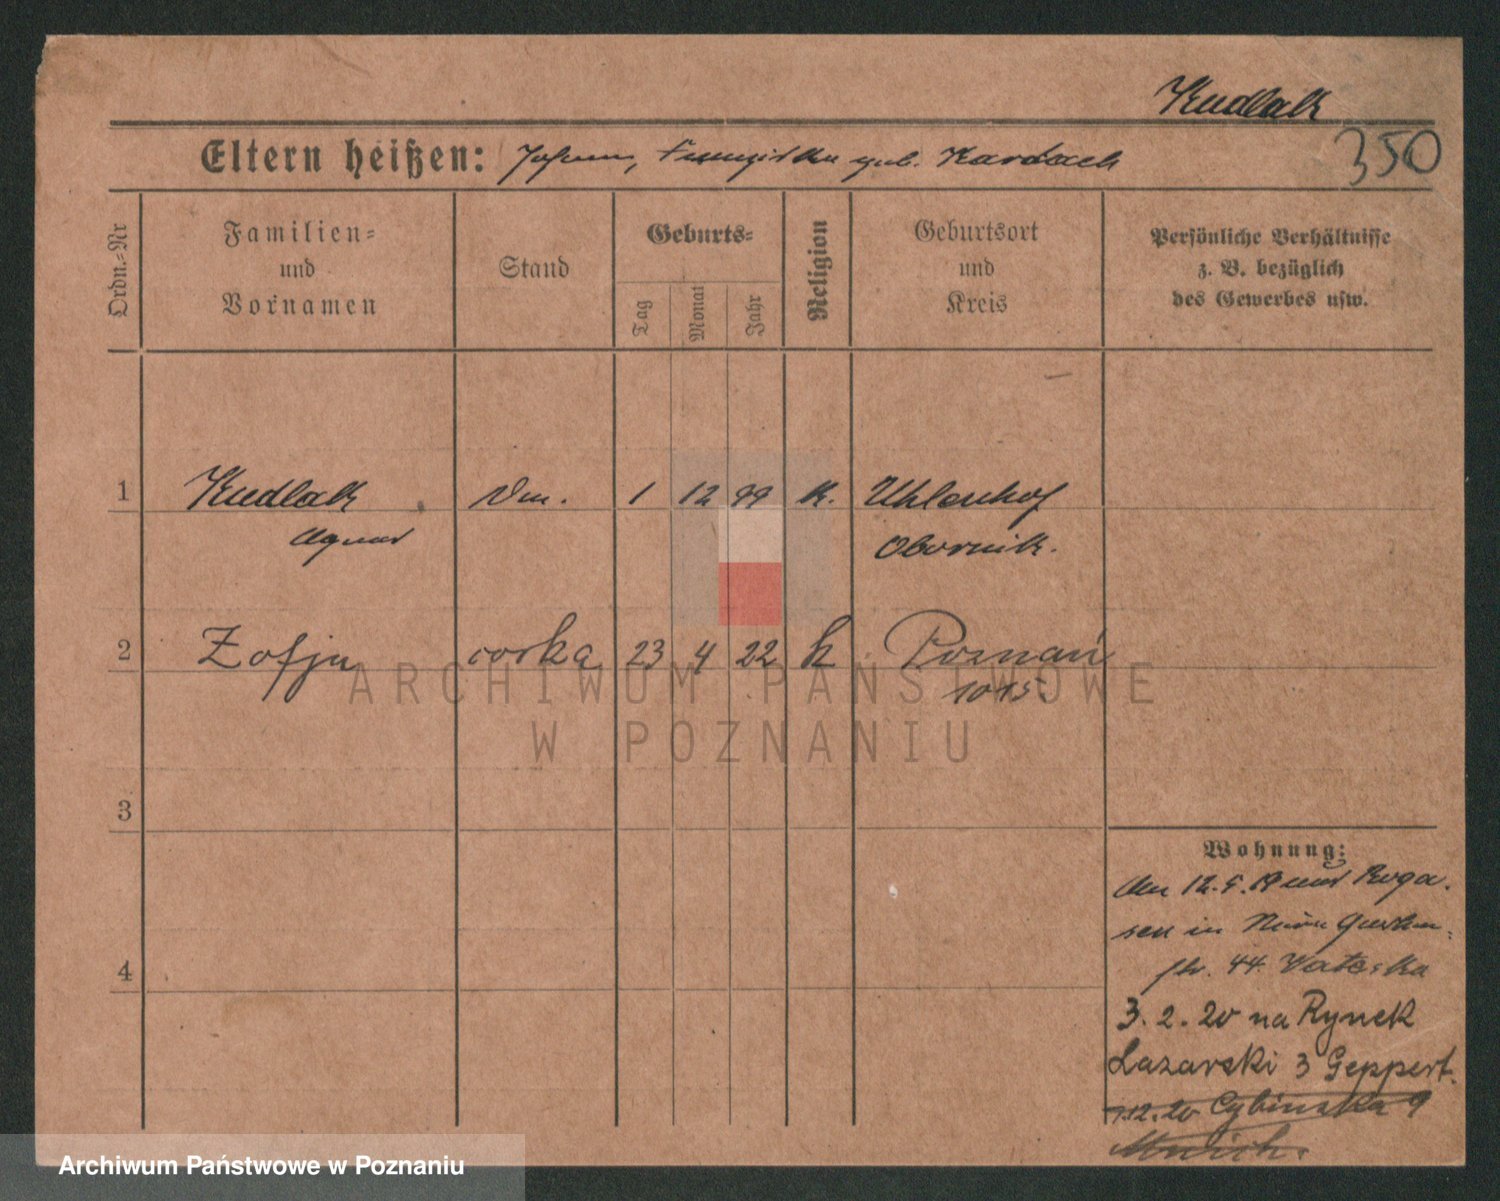 Kudlak
350
Eltern heißen: Johann, Franziska geb. Kardach
Ordn.-Nr
Familien-
und
Vornamen
Stand
Geburts-
Tag
Monat
Jahr
Religion
Geburtsort
und
Kreis
Persönliche Verhältnisse
z. B. bezüglich
des Gewerbes usw.
1 Kudlak Dm. 1 12 99 k. Uhlenhof
Agnes Obornik.
2 Zofja córka 23 4 22 k Poznań
1015.
3
4
Wohnung:
Am 12.5.19 aus Roga-
sen in
str. 44.
3.2.20 na Rynek
Łazarski 3 Geppert.
7.12.20 Cybinska 9
ARCHIWUM PAŃSTWOWE
W POZNANIU
Archiwum Państwowe w Poznaniu